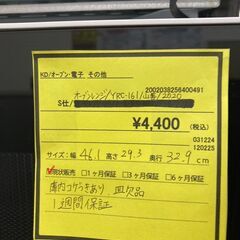 KD/オーブン・電子 その他
2002038256400491
S仕/
オーブンレンジ/YRC-161/山善/2020
¥4,400 (税込)
031224
120225
サイズ:幅 46.1 高さ 29.3 奥行 32.9 cm
現状販売 □1ヶ月保証 □3ヶ月保証 □6ヶ月保証
庫内コゲうきあり 皿欠品
1週間保証